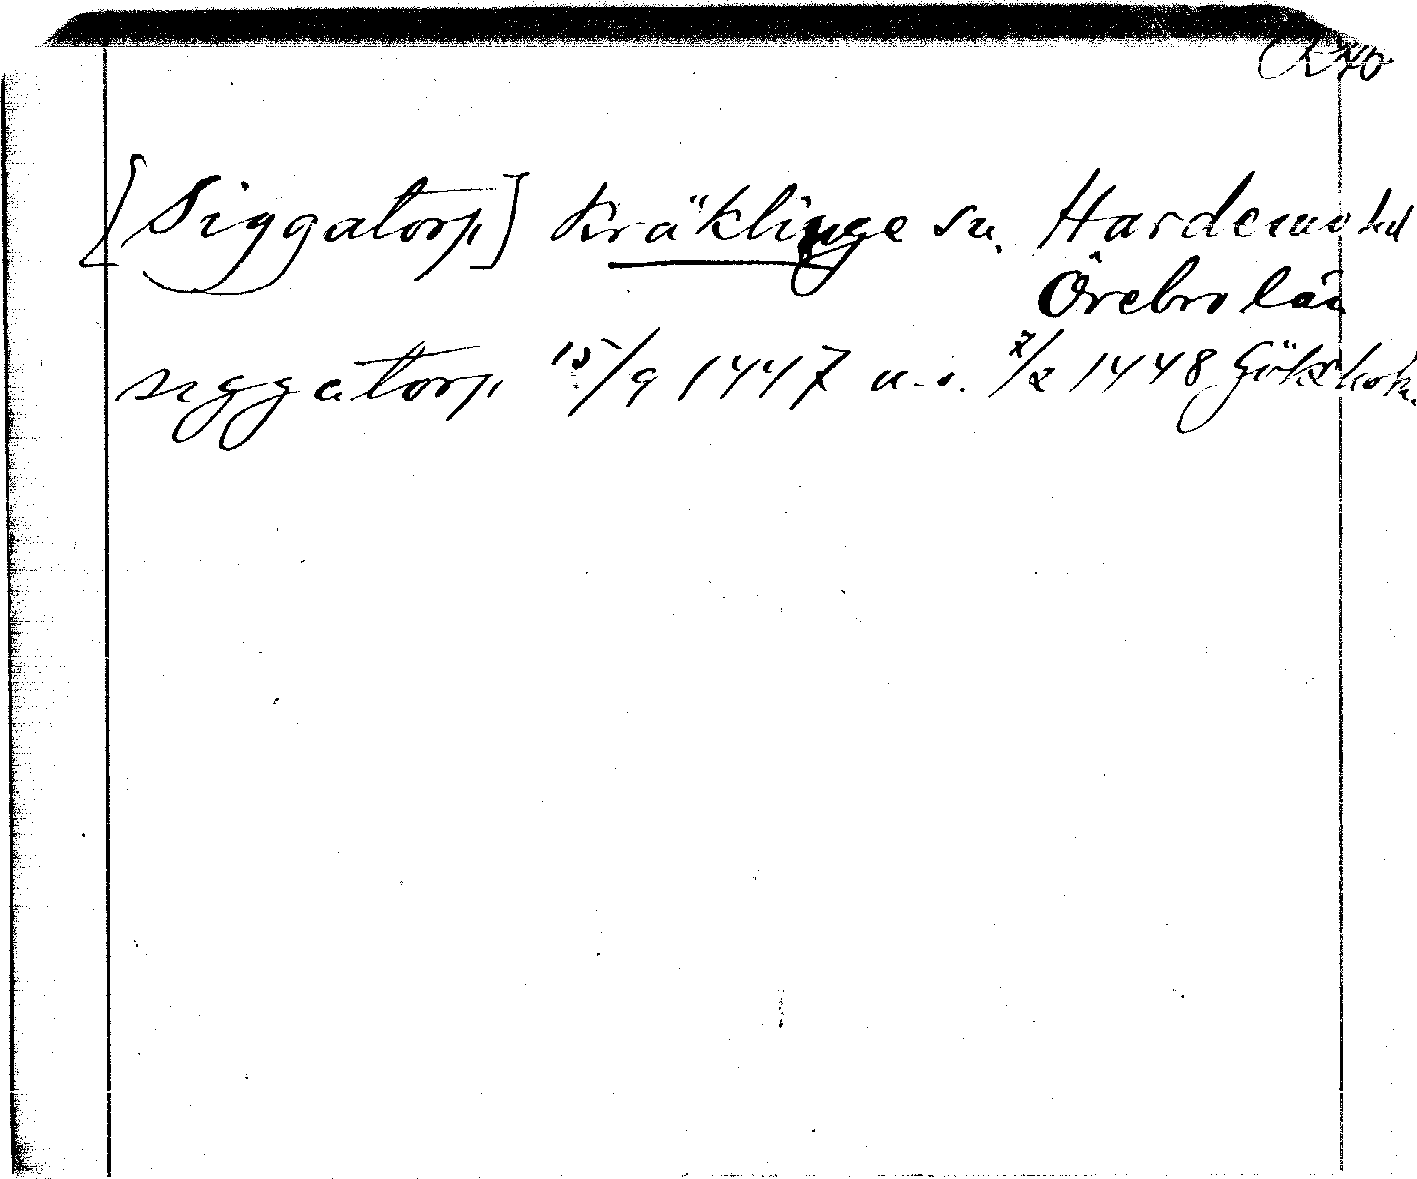 [Siggatorp] Kräklinge sn. Hardemo hd
Örebro län
siggatorp 15/9 1447 u.s. 7/2 1448 Göksholm